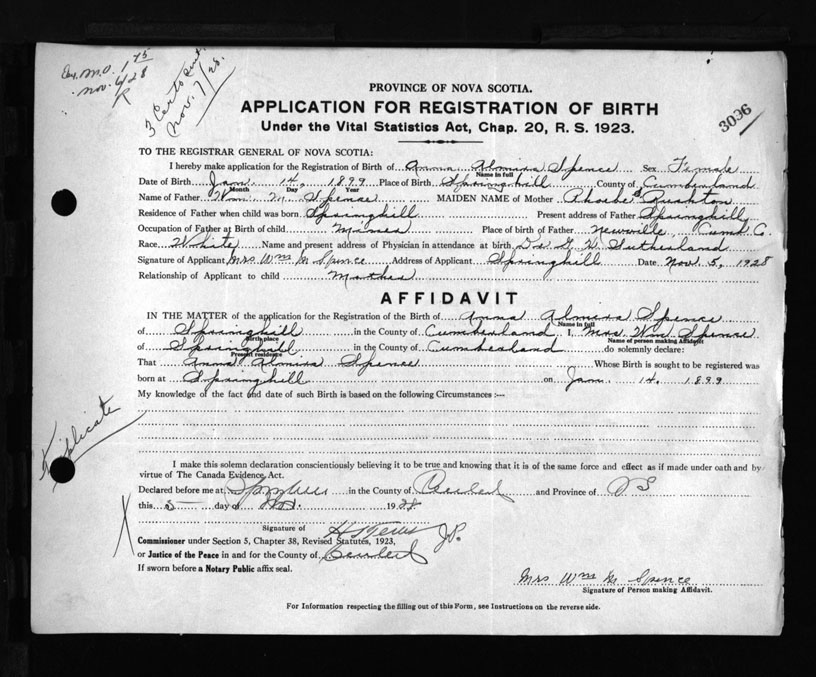 Ex. M.O. 1 75
Nov. 6/28
3 Certs sent.
Nov. 7/28.
3096
PROVINCE OF NOVA SCOTIA.
APPLICATION FOR REGISTRATION OF BIRTH
Under the Vital Statistics Act, Chap. 20, R. S. 1923.
TO THE REGISTRAR GENERAL OF NOVA SCOTIA:
I hereby make application for the Registration of Birth of Anna Almira Spence Sex Female
Name in full
Date of Birth Jan. 14, 1899 Place of Birth Springhill County of Cumberland
Month Day Year
Name of Father Wm. M. Spence MAIDEN NAME of Mother Phoebe Rushton
Residence of Father when child was born Springhill Present address of Father Springhill
Occupation of Father at Birth of child Miner Place of birth of Father Newville, Cumb. C.
Race White Name and present address of Physician in attendance at birth, Dr. Sutherland
Signature of Applicant Mrs Wm M Spence Address of Applicant Springhill Date Nov. 5, 1928
Relationship of Applicant to child Mother
AFFIDAVIT
IN THE MATTER of the application for the Registration of the Birth of Anna Almira Spence
Name in full
of Springhill in the County of Cumberland I, Mrs. Wm Spence
Birth place Name of person making Affidavit
of Springhill in the County of Cumberland do solemnly declare:
Present residence
That Anna Almira Spence Whose Birth is sought to be registered was
born at Springhill on Jan. 14, 1899
My knowledge of the fact and date of such Birth is based on the following Circumstances :—
Triplicate
I make this solemn declaration conscientiously believing it to be true and knowing that it is of the same force and effect as if made under oath and by
virtue of The Canada Evidence, Act.
Declared before me at Springhill in the County of Cumberland and Province of N S
this 5 day of Nov. 1928
Signature of
J.P.
Commissioner under Section 5, Chapter 38, Revised Statutes, 1923,
or Justice of the Peace in and for the County of Cumberland
If sworn before a Notary Public affix seal.
Mrs Wm M Spence
Signature of Person making Affidavit.
For Information respecting the filling out of this Form, see Instructions on the reverse side.